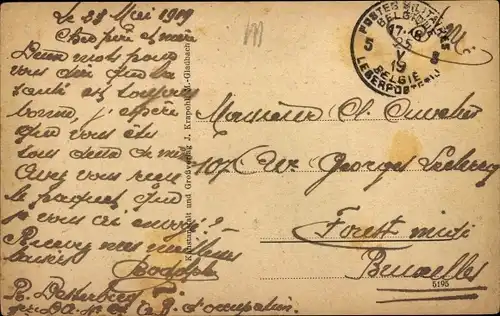 Le 28 Mai 1919
Cher père et mère
Deux mots pour
vous dire que la
santé est toujours
bonne, j'espère
que vous êtes
tous deux de même
Avez vous reçu
le paquet que
je vous ai envoyé??
Recevez mes meilleurs
baisers
Rodolphe
R.
d'occupation.
Kunstanstalt und Großverlag J. Krapohl, M.-Gladbach
POSTES MILITAIRES
BELGIQUE
17-18
25
V
19
5 5
BELGIE
LEGERPOSTERIJ
S.M.
Monsieur Cl.
107 Av. Georges Leclercq
Forest midi
Bruxelles
5195